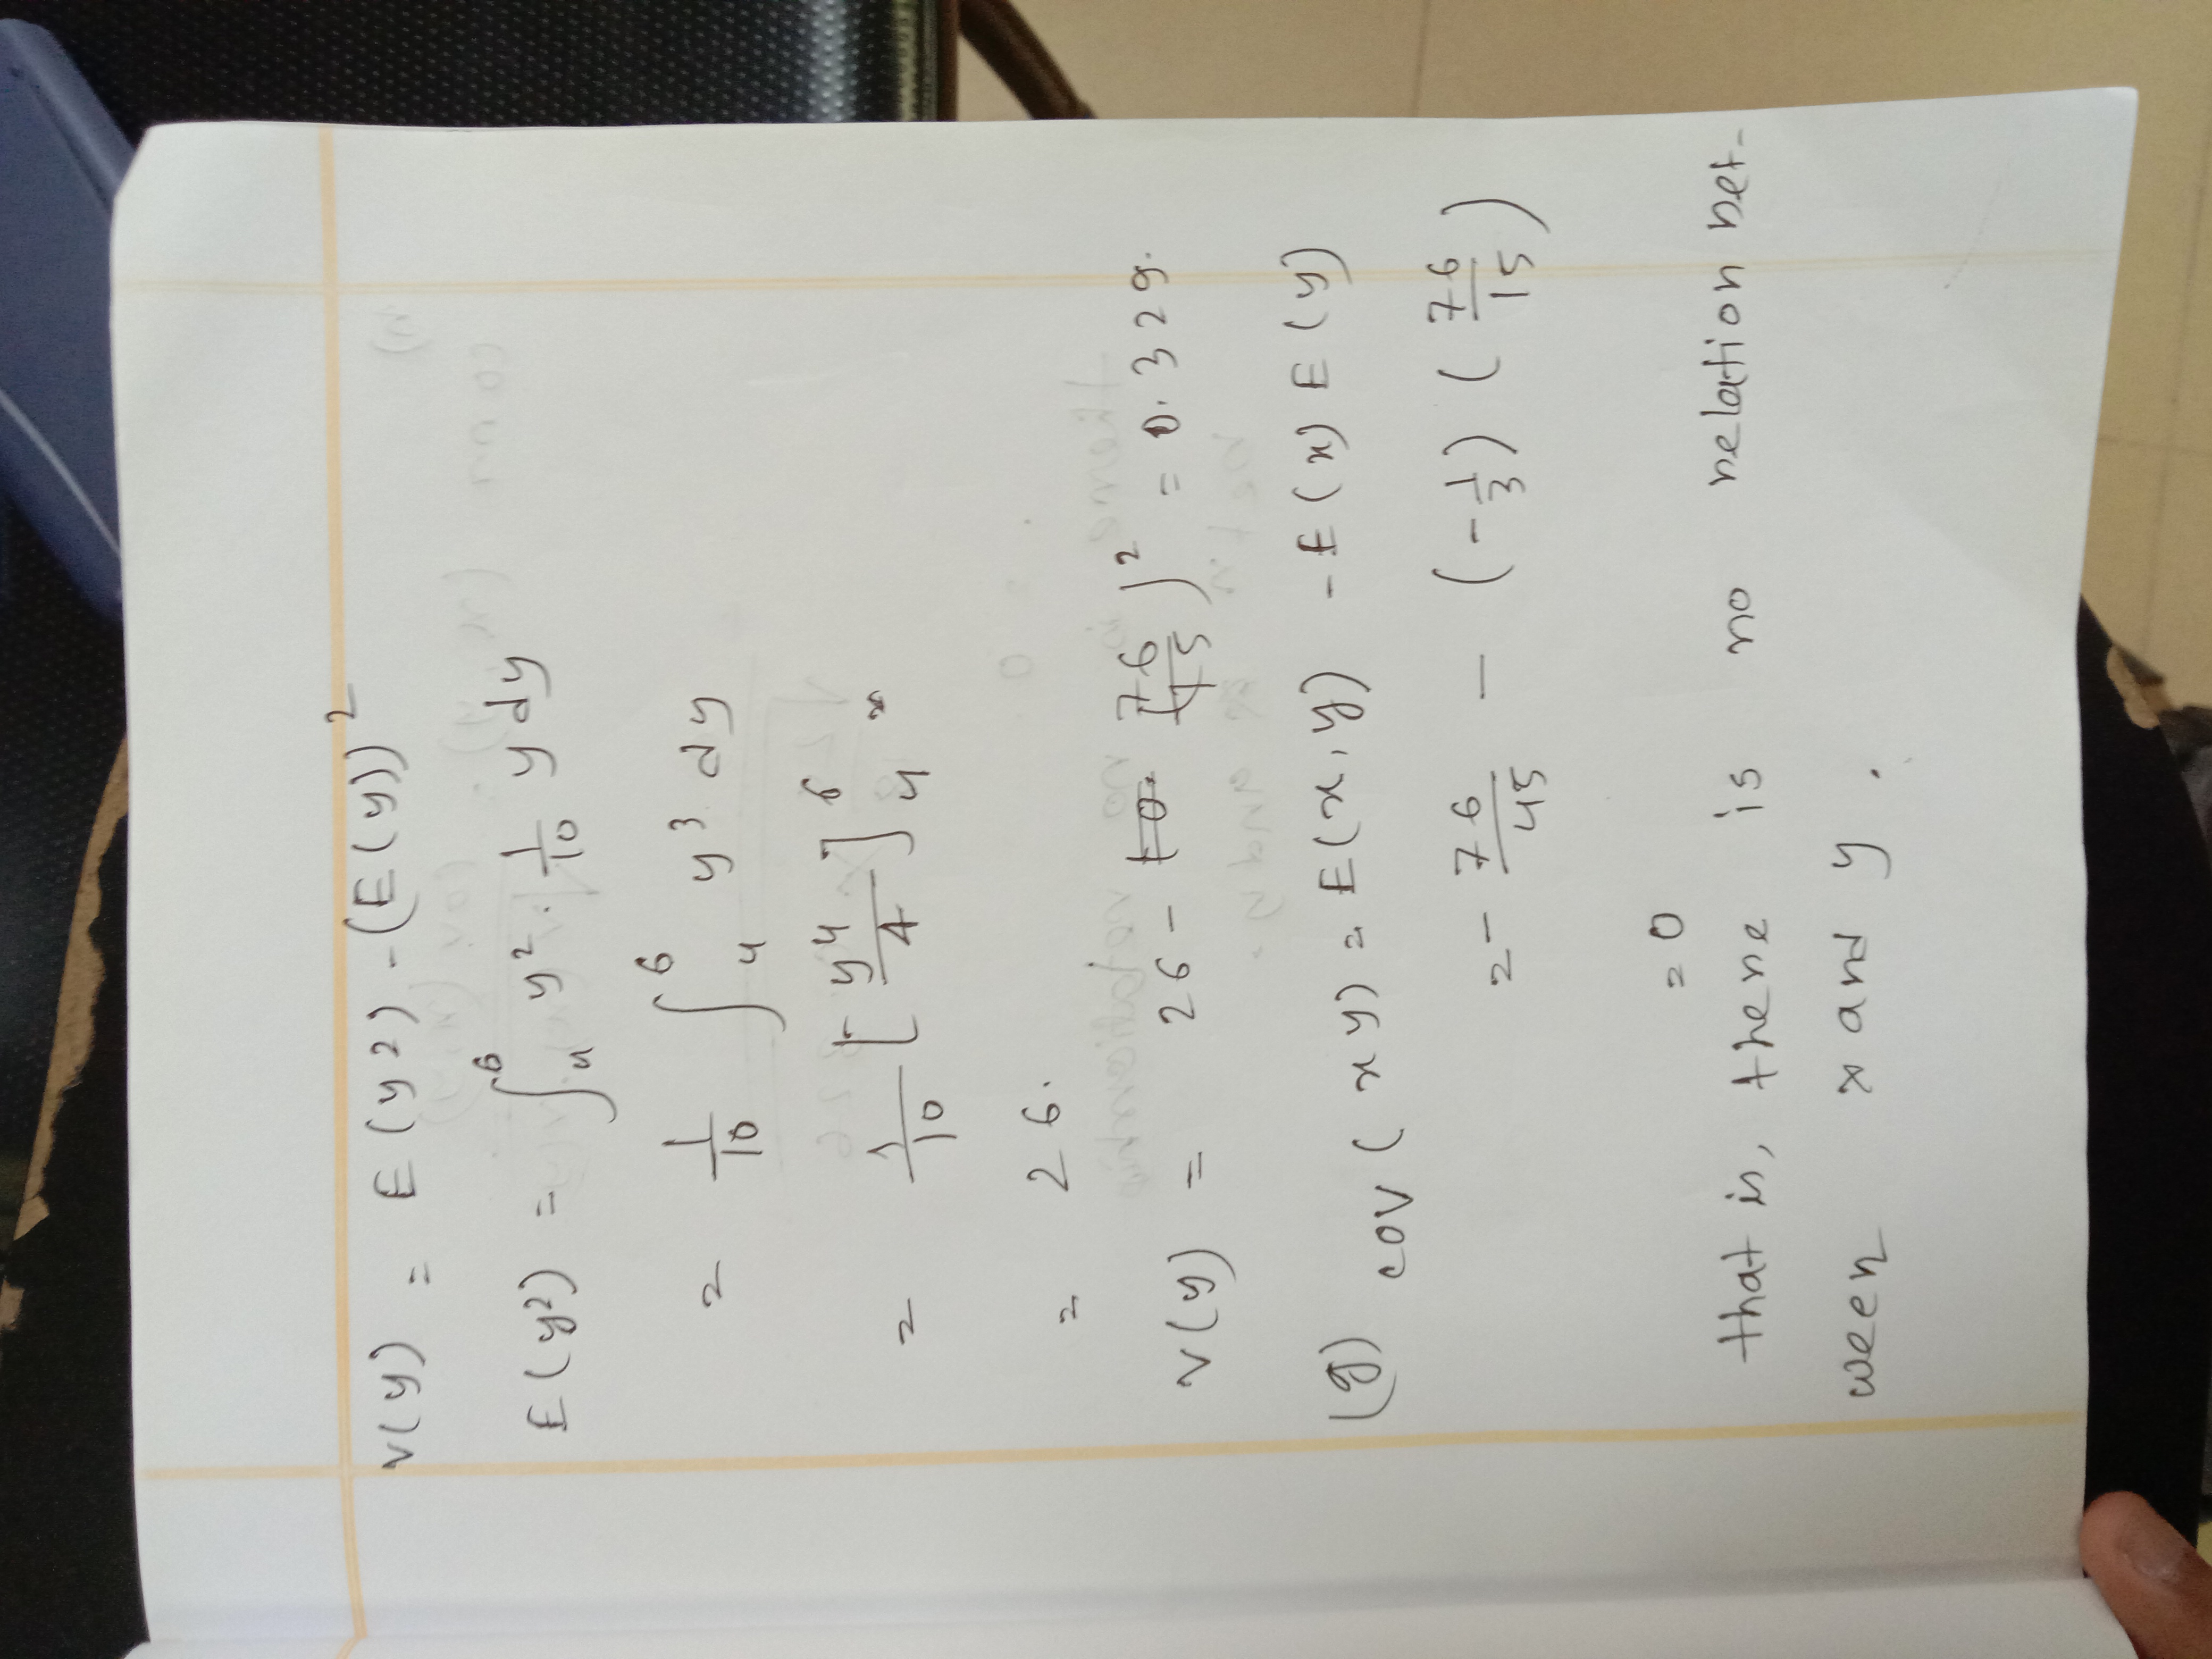 v(y) = E(y²) - (E(y))²
E(y²) = ∫₄⁶ y² · 1/10 y dy
= 1/10 ∫₄⁶ y³ dy
= 1/10 [y⁴/4]₄⁶
= 26.
v(y) = 26 - (76/15)² = 0.329.
(g) cov(xy) = E(x,y) - E(x) E(y)
= - 76/45 - (-1/3) (76/15)
= 0
that is, there is no relation bet-
ween x and y.